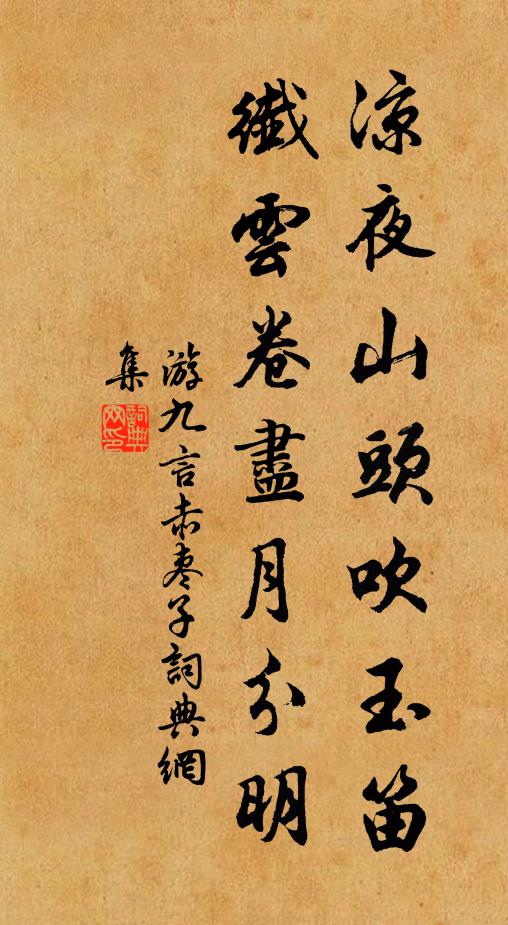 涼夜山頭吹玉笛
纖雲卷盡月分明
游九言赤棗子詞典網
集
詞典
网印